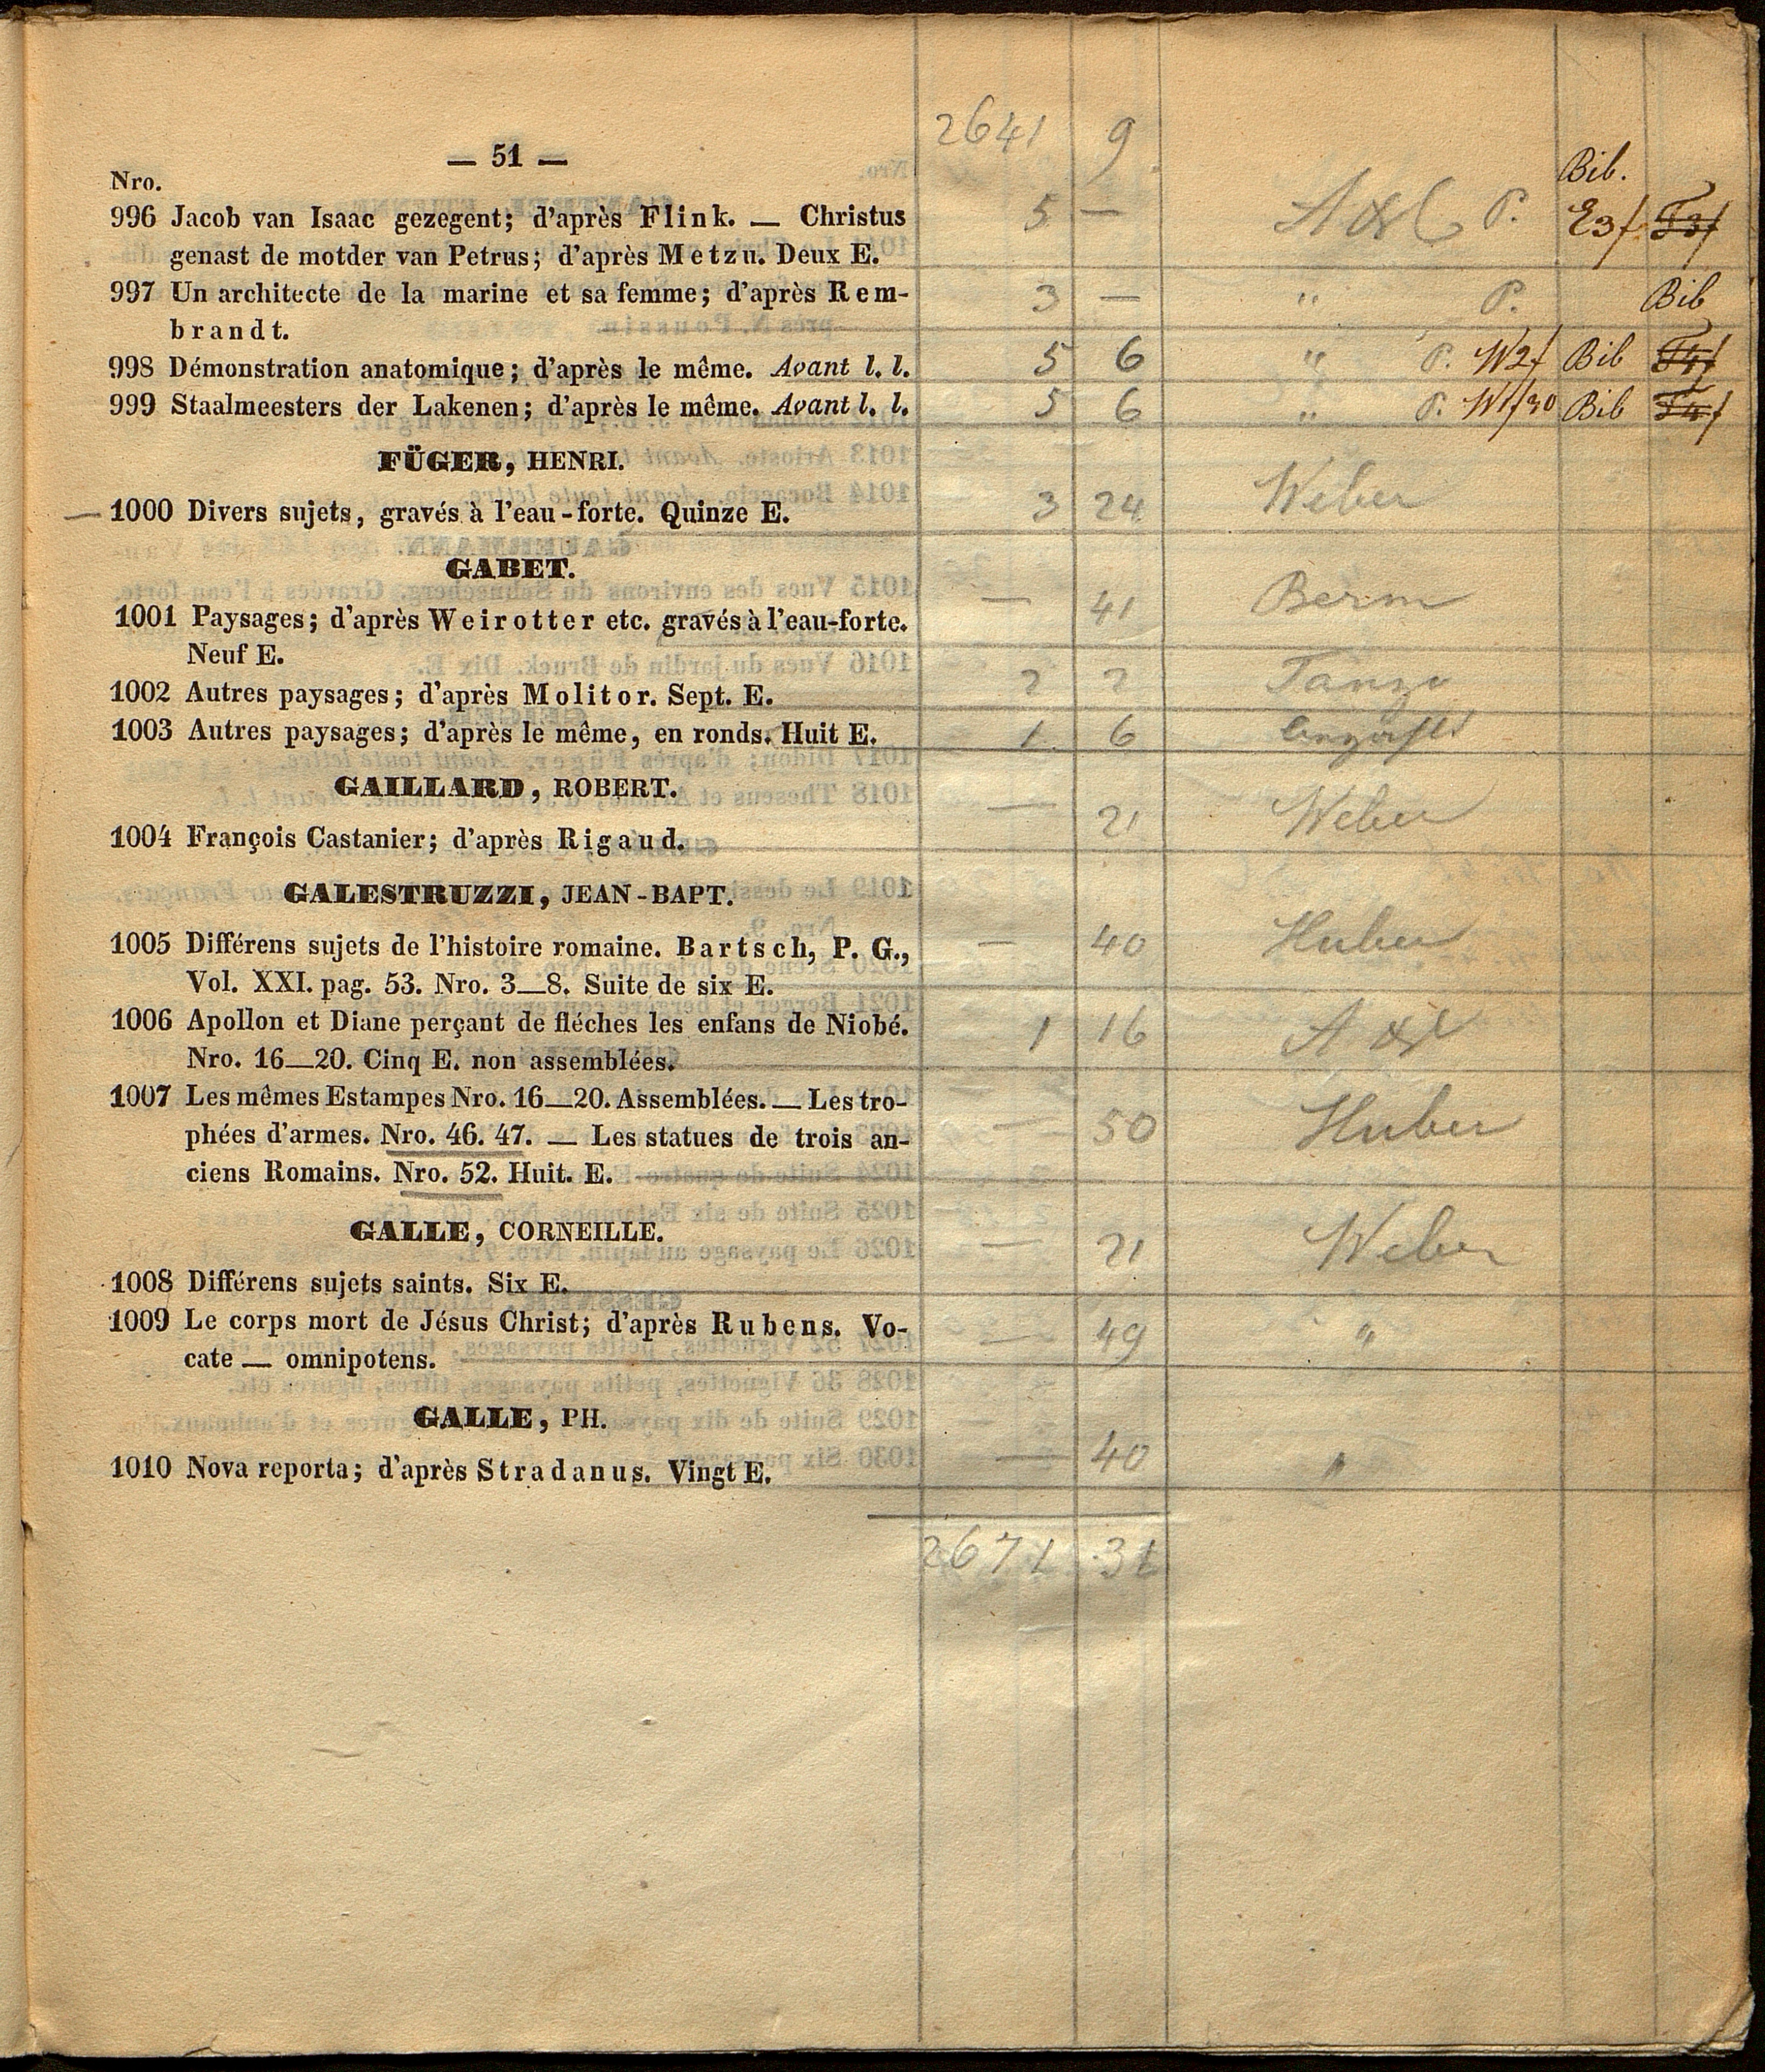 2641 9
— 51 —
Nro.
Bib.
996 Jacob van Isaac gezegent; d'après Flink. — Christus 5 — P. E3f
genast de motder van Petrus; d'après Metzu. Deux E.
997 Un architecte de la marine et sa femme; d'après Rem- 3 — " P. Bib
brandt.
998 Démonstration anatomique; d'après le même. Avant l. l. 5 6 " P. W2f Bib
999 Staalmeesters der Lakenen; d'après le même. Avant l. l. 5 6 " P. W1f30 Bib
FÜGER, HENRI.
— 1000 Divers sujets, gravés à l'eau-forte. Quinze E. 3 24 Weber
GABET.
1001 Paysages; d'après Weirotter etc. gravés à l'eau-forte. — 41 Berm
Neuf E.
1002 Autres paysages; d'après Molitor. Sept. E. 2 2
1003 Autres paysages; d'après le même, en ronds. Huit E. 1 6
GAILLARD, ROBERT.
1004 François Castanier; d'après Rigaud. — 21 Weber
GALESTRUZZI, JEAN-BAPT.
1005 Différens sujets de l'histoire romaine. Bartsch, P. G., — 40 Huber
Vol. XXI. pag. 53. Nro. 3—8. Suite de six E.
1006 Apollon et Diane perçant de fléches les enfans de Niobé. 1 16
Nro. 16—20. Cinq E. non assemblées.
1007 Les mêmes Estampes Nro. 16—20. Assemblées. — Les tro- — 50 Huber
phées d'armes. Nro. 46. 47. — Les statues de trois an-
ciens Romains. Nro. 52. Huit. E.
GALLE, CORNEILLE.
1008 Différens sujets saints. Six E. — 21 Weber
1009 Le corps mort de Jésus Christ; d'après Rubens. Vo- — 49 "
cate — omnipotens.
GALLE, PH.
1010 Nova reporta; d'après Stradanus. Vingt E. — 40 "
2671 31